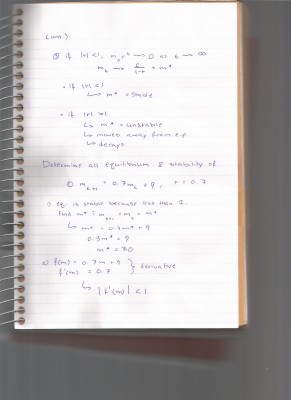 (cont.)
① if |r| < 1, m₀ rᵗ → 0 as t → ∞
mₜ → a/(1-r) = m*
• if |r| < 1
↳ m* = stable
• if |r| > 1
↳ m* = unstable
↳ moves away from e.p
↳ decays
Determine all equilibrium & stability of
① mₜ₊₁ = 0.7mₜ + 9, r = 0.7
1) eq. is stable because less than 1.
Find m* : mₜ₊₁ = mₜ = m*
↳ m* = 0.7m* + 9
0.3m* = 9
m* = 30
2) f(m) = 0.7m + 9 } derivative
f'(m) = 0.7
↳ |f'(m)| < 1